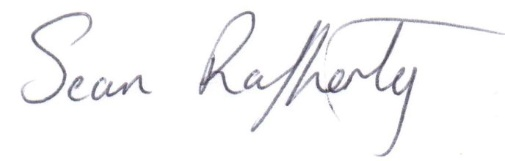 Sean Rafferty